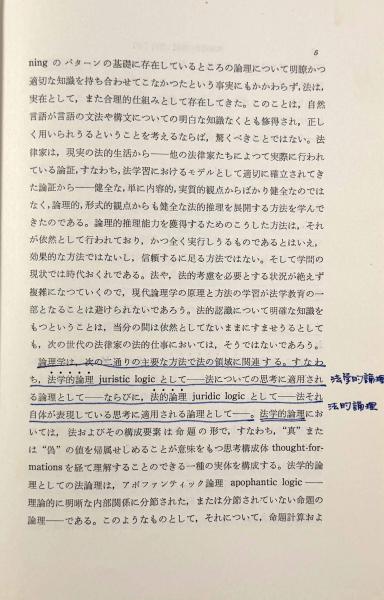 5
ning のパターンの基礎に存在しているところの論理について明瞭かつ
適切な知識を持ち合わせてこなかつたという事実にもかかわらず,法は,
実在として,また合理的仕組みとして存在してきた。このことは,自然
言語が言語の文法や構文についての明白な知識なくとも修得され,正し
く用いられうるということを考えるならば,驚くべきことではない。法
律家は,現実の法的生活から──他の法律家たちによつて実際に行われ
ている論証,すなわち,法学習におけるモデルとして適切に確立されてき
た論証から──健全な,単に内容的,実質的観点からばかり健全なのではな
く,論理的,形式的観点からも健全な法的推理を展開する方法を学んで
きたのである。論理的推理能力を獲得するためのこうした方法は,それ
が依然として行われており,かつ全く実行しうるものであるとはいえ,
効果的な方法ではないし,信頼するに足る方法ではない。そして学問の
現状では時代おくれである。法や,法的考慮を必要とする状況が絶えず
複雑になつていくので,現代論理学の原理と方法の学習が法学教育の一
部となることは避けられないであろう。法的認識について明確な知識を
もつということは,当分の間は依然としてないままにすませうるとして
も,次の世代の法律家の法的仕事においては,そうではないであろう。
論理学は,次の二通りの主要な方法で法の領域に関連する。すなわ
ち,法学的論理 juristic logic として──法についての思考に適用され 法学的論理
る論理として──ならびに,法的論理 juridic logic として──法それ 法的論理
自体が表現している思考に適用される論理として──。法学的論理にお
いては,法およびその構成要素は命題の形で,すなわち,“真”または
は“偽”の値を帰属せしめることが意味をもつ思考構成体 thought-for-
mations を経て理解することのできる一種の実体を構成する。法学的論
理としての法論理は,アポファンティック論理 apophantic logic──
理論的に明晰な内部関係に分節された,または分節されていない命題の
論理──である。このようなものとして,それについて,命題計算およ